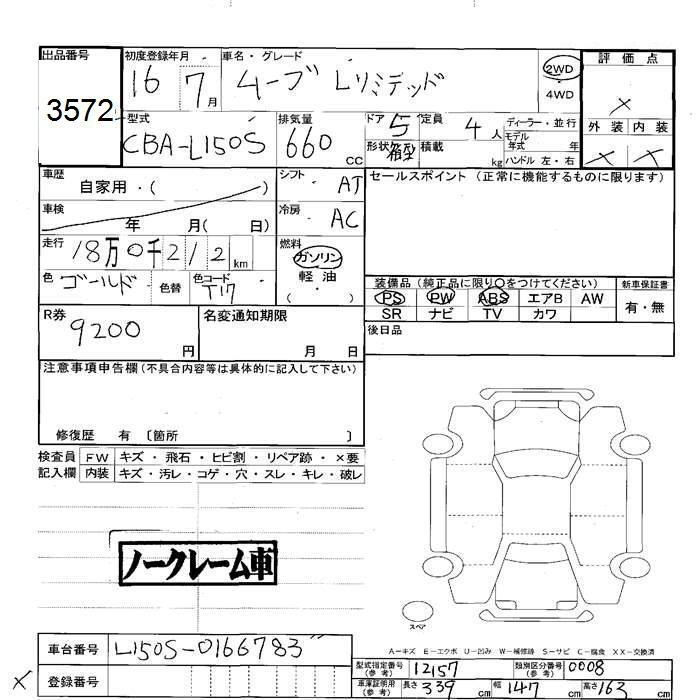 出品番号
3572
初度登録年月
16 7月
車名・グレード
ムーブ Lリミテッド
2WD
・
4WD
評価点
×
外装 内装
× ×
型式
CBA-L150S
排気量
660 cc
ドア 5
形状 箱型
定員 4人
積載 kg
ディーラー・並行
モデル年式 年
ハンドル 左・右
車歴
自家用・( )
車検
年 月( 日)
シフト
AT
冷房
AC
走行
18万0千212km
燃料
ガソリン
軽油
・( )
色 ゴールド 色替
色コード T17
セールスポイント(正常に機能するものに限ります)
装備品(純正品に限り〇をつけてください) 新車保証書
PS PW ABS エアB AW
SR ナビ TV カワ
有・無
後日品
R券
9200
円
名変通知期限
月 日
注意事項申告欄(不具合内容等は具体的に記入して下さい)
修復歴 有 〔箇所 〕
検査員 FW キズ・飛石・ヒビ割・リペア跡・×要
記入欄 内装 キズ・汚レ・コゲ・穴・スレ・キレ・破レ
ノークレーム車
スペア
A-キズ E-エクボ U-凹み W-補修跡 S-サビ C-腐食 XX-交換済
車台番号 L150S-0166783
× 登録番号
型式指定番号(参考) 12157 類別区分番号(参考) 0008
車庫証明用(参考) 長さ 339cm 幅 147cm 高さ 163cm